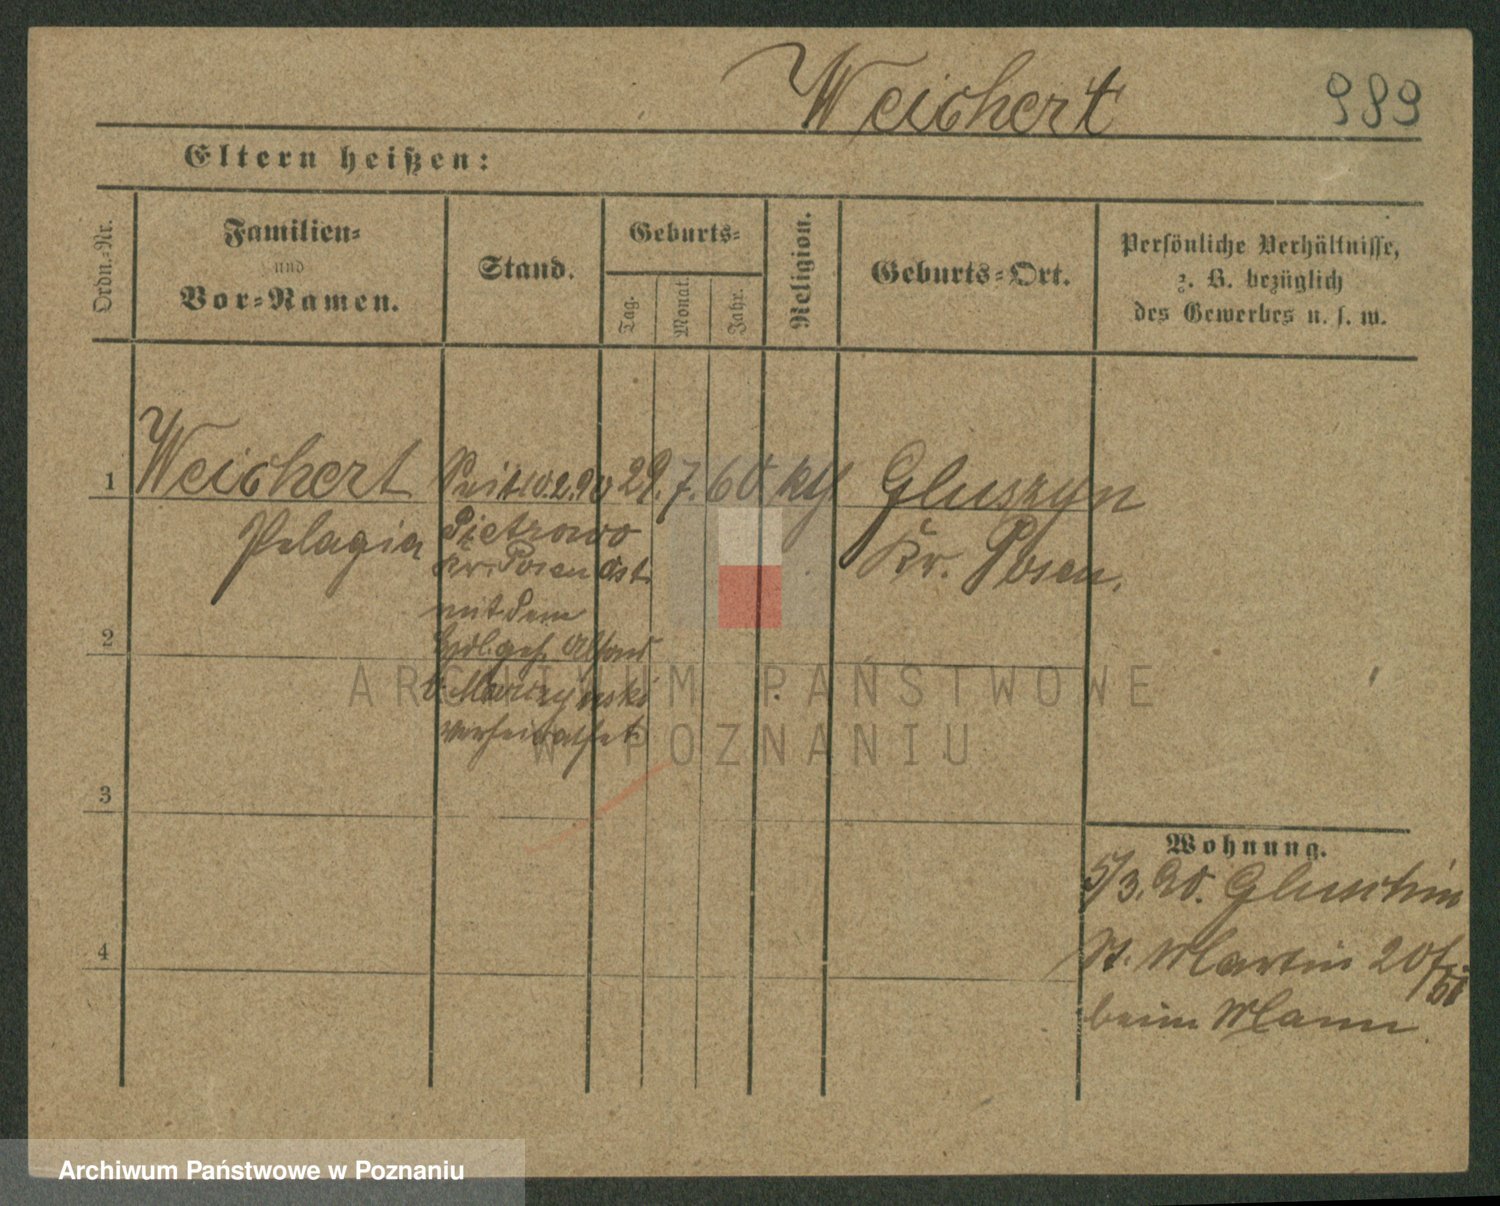 Weichert 989
Eltern heißen:
Ordn.-Nr.
Familien-
und
Vor-Namen.
Stand.
Geburts-
Tag.
Monat.
Jahr.
Religion.
Geburts-Ort.
Persönliche Verhältnisse,
z. B. bezüglich
des Gewerbes u. s. w.
1 Weichert Seit 10.2.90 29. 7. 60 kth Gluszyn
Pelagia Pietrowo Kr. Posen.
Kr. Posen Ost.
mit dem
2
v. Murzynski
verheirathet.
3
Wohnung.
5/3. 90. Gluschin
4 St. Martin 20/
beim Mann
ARCHIWUM PAŃSTWOWE
W POZNANIU
Archiwum Państwowe w Poznaniu